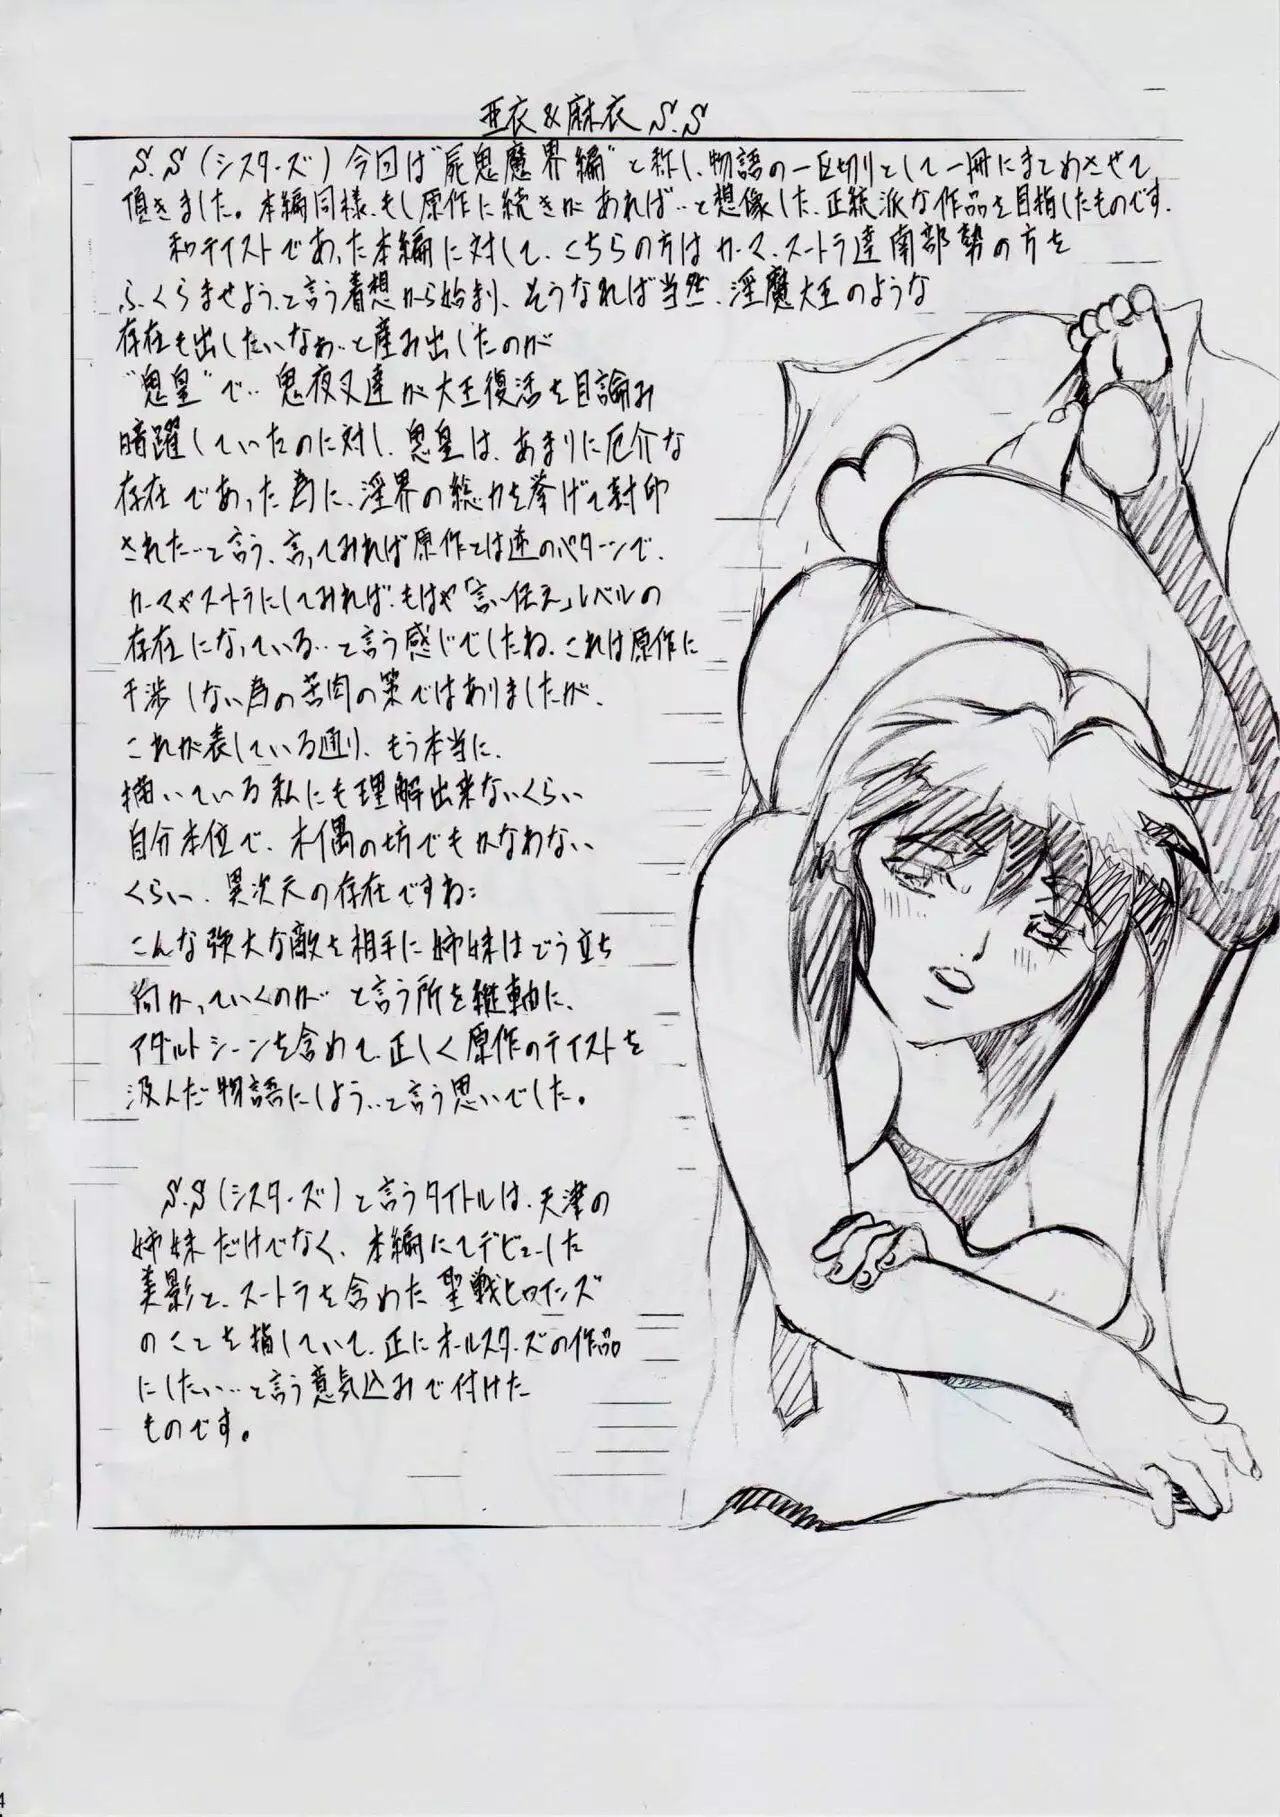 亜衣&麻衣 S.S
S.S (シスターズ) 今回は"屍鬼魔界編"と称し、物語の一区切りとして一冊にまとめさせて
頂きました。本編同様、もし原作に続きがあれば…と想像した、正統派な作品を目指したものです。
和テイストであった本編に対して、こちらの方はカーマ、スートラ達南部勢の方を
ふくらませよう、と言う着想から始まり、そうなれば当然、淫魔大王のような
存在も出したいなぁ…と産み出したのが
"鬼皇"で‥鬼夜叉達が大王復活を目論み
暗躍していたのに対し、鬼皇は、あまりに厄介な
存在であった為に、淫界の総力を挙げて封印
された…と言う、言ってみれば原作とは逆のパターンで、
カーマやスートラにしてみれば、もはや「言い伝え」レベルの
存在になっている…と言う感じでしたね、これは原作に
干渉しない為の苦肉の策ではありましたが、
これが表している通り、もう本当に、
描いている私にも理解出来ないくらい
自分本位で、木偶の坊でもかなわない
くらい、異次元の存在ですね:
こんな強大な敵を相手に姉妹はどう立ち
向かっていくのか と言う所を縦軸に、
アダルトシーンを含めて、正しく原作のテイストを
汲んだ物語にしよう…と言う思いでした。
S.S (シスターズ) と言うタイトルは、天津の
姉妹だけでなく、本編にてデビューした
美影と、スートラを含めた聖戦ヒロインズ
のことを指していて、正にオールスターズの作品
にしたい…と言う意気込みで付けた
ものです。
4